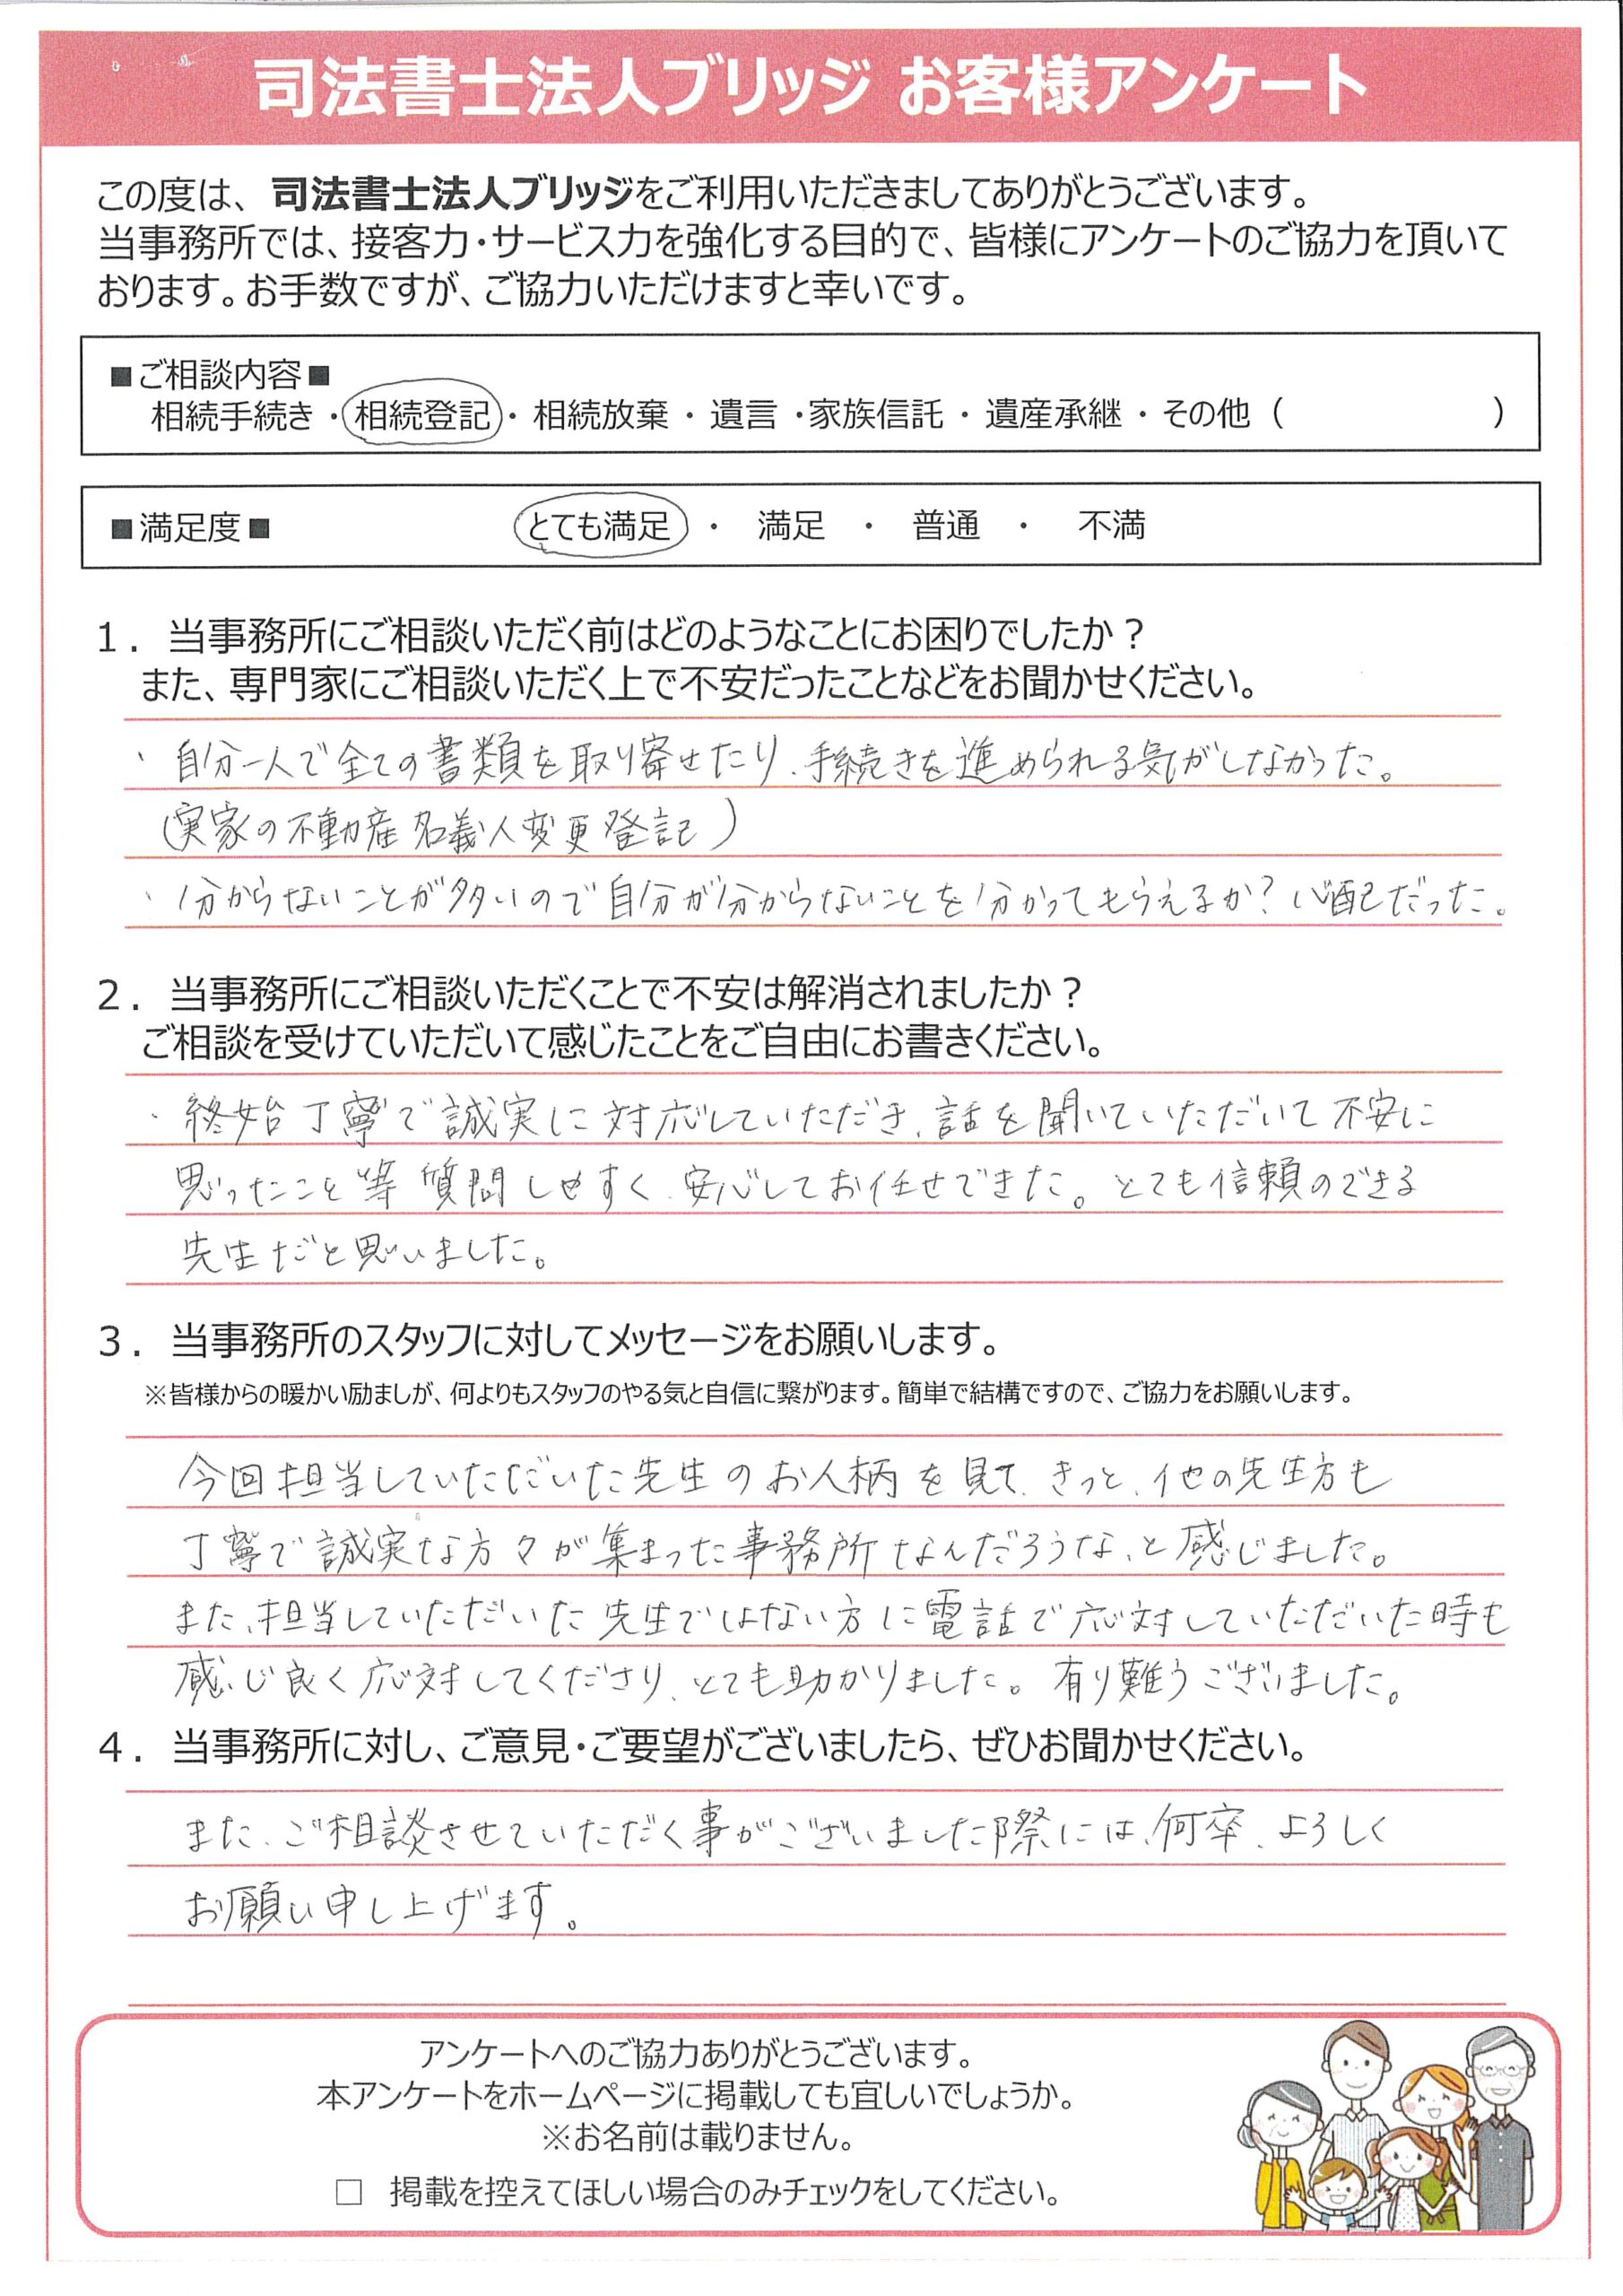 司法書士法人ブリッジ お客様アンケート
この度は、司法書士法人ブリッジをご利用いただきましてありがとうございます。
当事務所では、接客力・サービス力を強化する目的で、皆様にアンケートのご協力を頂いて
おります。お手数ですが、ご協力いただけますと幸いです。
■ご相談内容■
相続手続き ・ 相続登記 ・ 相続放棄 ・ 遺言 ・家族信託 ・ 遺産承継 ・ その他 （　　　　　　）
■満足度■　とても満足 ・ 満足 ・ 普通 ・ 不満
１．当事務所にご相談いただく前はどのようなことにお困りでしたか？
また、専門家にご相談いただく上で不安だったことなどをお聞かせください。
・自分一人で全ての書類を取り寄せたり、手続きを進められる気がしなかった。
（実家の不動産名義人変更登記）
・分からないことが多いので自分が分からないことを分かってもらえるか？心配だった。
２．当事務所にご相談いただくことで不安は解消されましたか？
ご相談を受けていただいて感じたことをご自由にお書きください。
・終始丁寧で誠実に対応していただき、話を聞いていただいて不安に
思ったこと等質問しやすく、安心してお任せできた。とても信頼のできる
先生だと思いました。
３．当事務所のスタッフに対してメッセージをお願いします。
※皆様からの暖かい励ましが、何よりもスタッフのやる気と自信に繋がります。簡単で結構ですので、ご協力をお願いします。
今回担当していただいた先生のお人柄を見て、きっと、他の先生方も
丁寧で誠実な方々が集まった事務所なんだろうな、と感じました。
また、担当していただいた先生ではない方に電話で応対していただいた時も
感じ良く応対してくださり、とても助かりました。有り難うございました。
４．当事務所に対し、ご意見・ご要望がございましたら、ぜひお聞かせください。
また、ご相談させていただく事がございました際には、何卒、よろしく
お願い申し上げます。
アンケートへのご協力ありがとうございます。
本アンケートをホームページに掲載しても宜しいでしょうか。
※お名前は載りません。
□ 掲載を控えてほしい場合のみチェックをしてください。